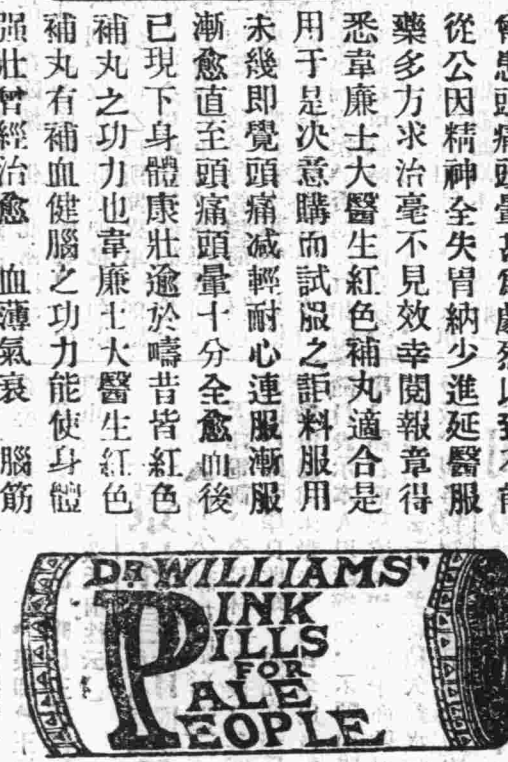 曾患頭痛頭暈甚爲劇烈以致不能
從公因精神全失胃納少進延醫服
藥多方求治毫不見效幸閱報章得
悉韋廉士大醫生紅色補丸適合是
用于是次意購而試服之詎料服用
未幾即覺頭痛減輕耐心連服漸服
漸愈直至頭痛頭暈十分全愈而後
已現下身體康壯逾於疇昔皆紅色
補丸之功力也韋廉士大醫生紅色
補丸有補血健腦之功力能使身體
强壯曾經治愈 血薄氣衰 腦筋
DR WILLIAMS'
PINK
PILLS
FOR
PALE
PEOPLE